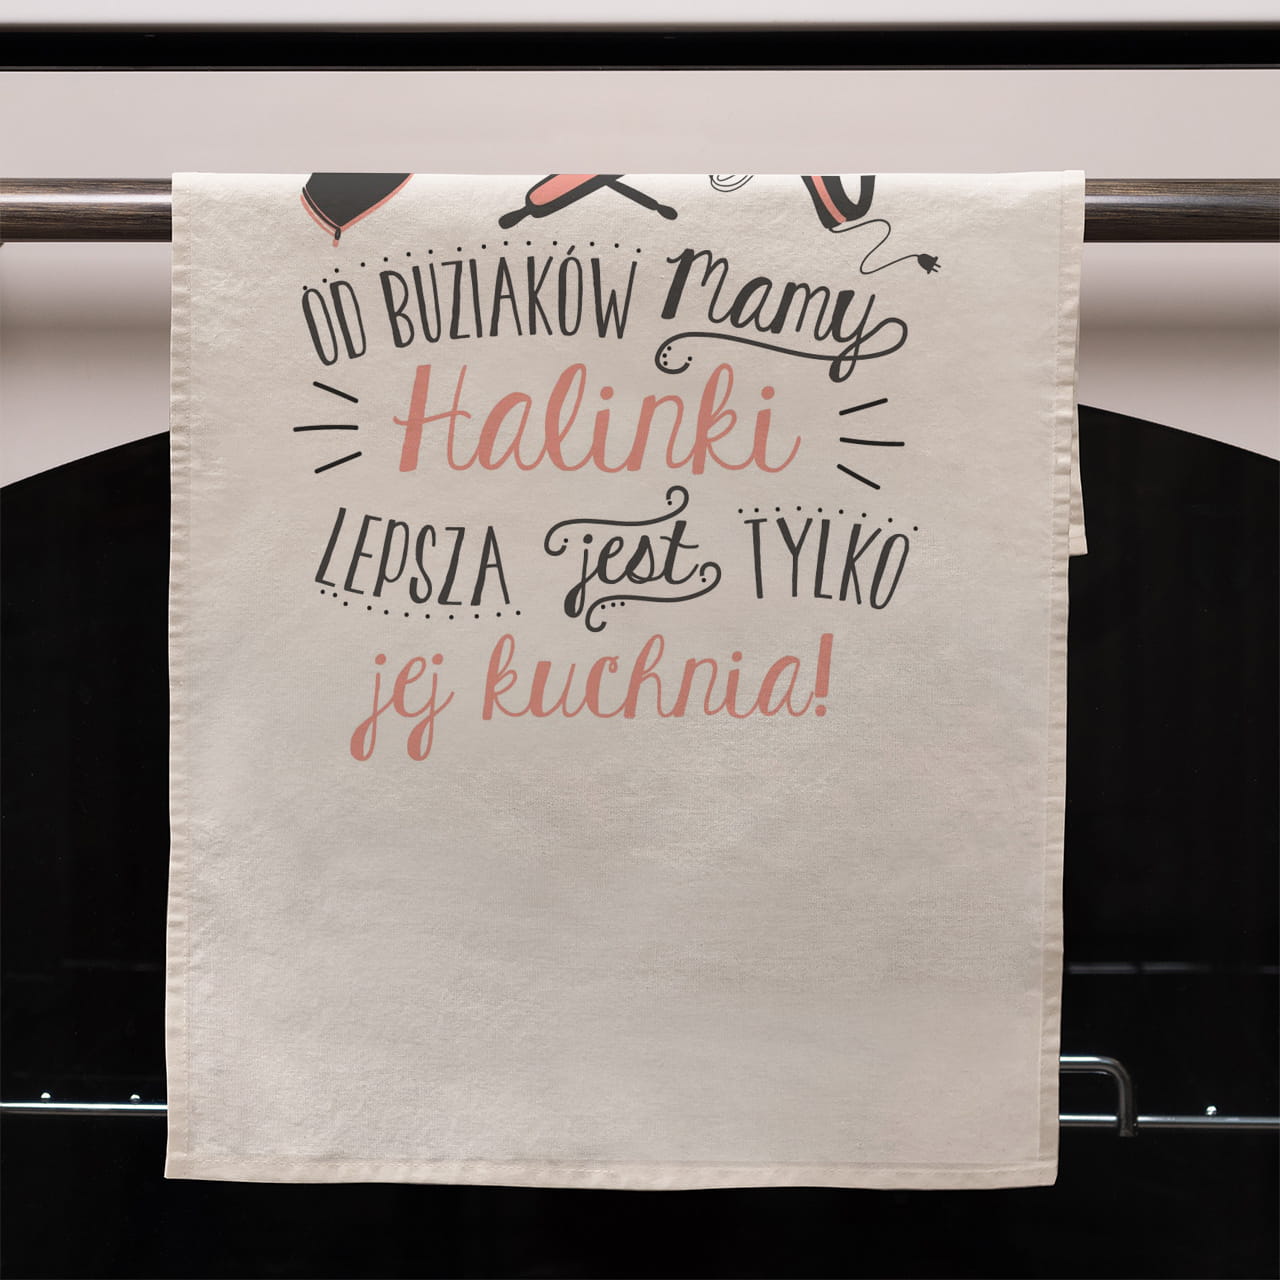 OD BUZIAKÓW Mamy
Halinki
LEPSZA jest TYLKO
jej kuchnia!